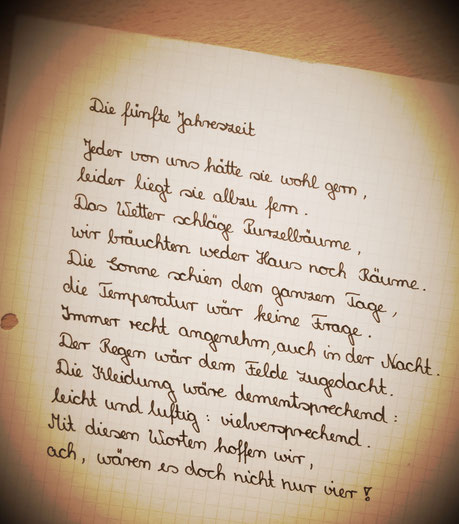 Die fünfte Jahreszeit
Jeder von uns hätte sie wohl gern,
leider liegt sie allzu fern.
Das Wetter schläge Purzelbäume,
wir bräuchten weder Haus noch Räume.
Die Sonne schien den ganzen Tage,
die Temperatur wär keine Frage.
Immer recht angenehm, auch in der Nacht.
Der Regen wär dem Felde zugedacht.
Die Kleidung wäre dementsprechend:
leicht und luftig: vielversprechend.
Mit diesen Worten hoffen wir,
ach, wären es doch nicht nur vier!